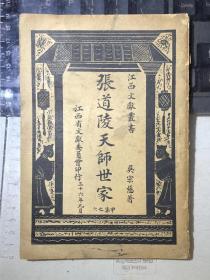 江西文獻叢書
吳宗慈著
張道陵天師世家
甲集之六
江西省文獻委員會印行
三十六年九月